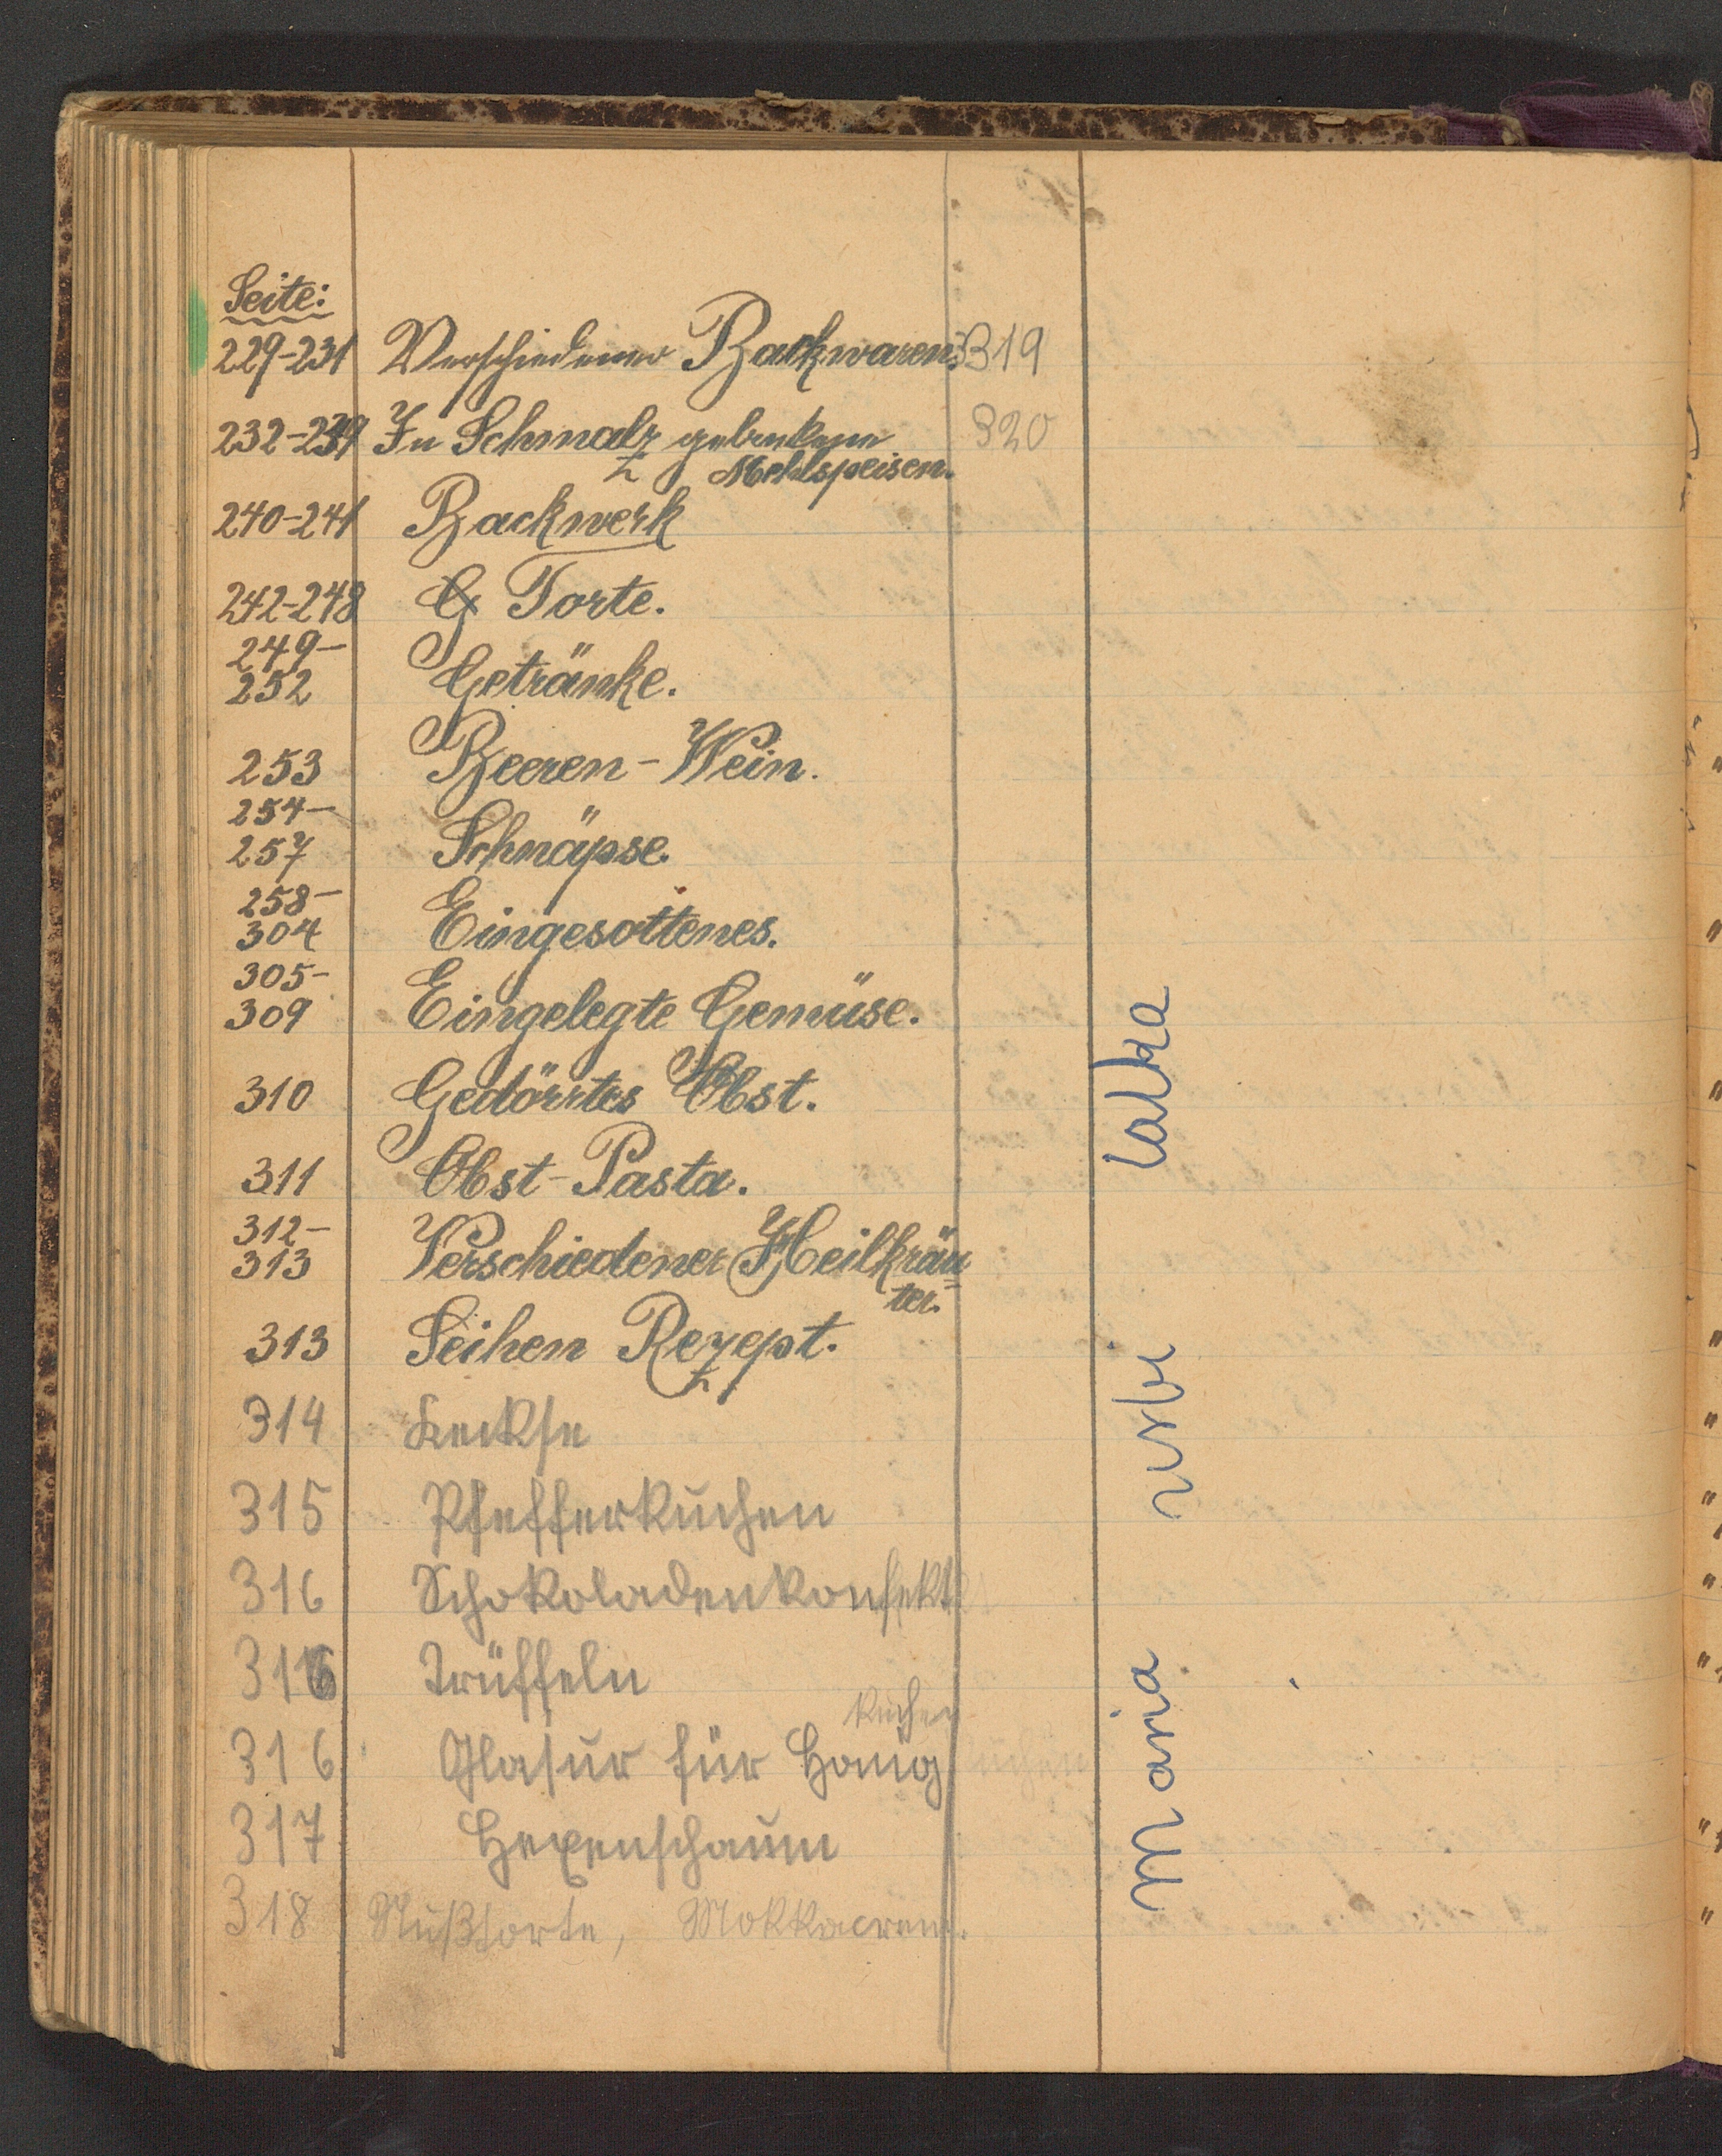 Seite:
229-231 Verschiedener Backwaren. 319
232-239 In Schmalz gebackene 320
Mehlspeisen.
240-241 Backwerk
242-248 Torte.
249-
252 Getränke.
253 Beeren-Wein.
254-
257 Schnäpse.
258-
304 Eingesottenes.
305-
309 Eingelegte Gemüse.
310 Gedörrtes Obst.
311 Obst-Pasta.
312-
313 Verschiedener Heilkräu
ter.
313 Seihen Rezept.
314 Keckse
315 Pfefferkuchen
316 Schokoladenkonfekt
316 Trüffeln
kuchen
316 Glasur für Honig
317 Hexenschaum
318 Nußtorte, Mokkacrem.
Maria rusbi lalka